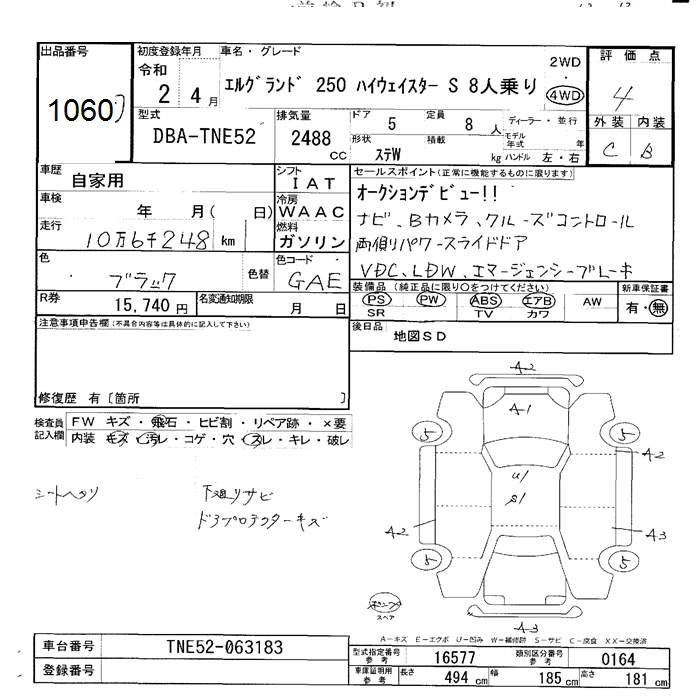 出品番号
1060
初度登録年月
令和
2 4月
車名・グレード
エルグランド 250 ハイウェイスター S 8人乗り
2WD
・
4WD
評価点
4
外装 内装
C B
型式
DBA-TNE52
排気量
2488
CC
ドア 5 定員 8 人
形状 積載 kg
ステW
ディーラー・並行
モデル年式 年
ハンドル 左・右
車歴
自家用
シフト
IAT
車検
年 月( 日)
冷房
WAAC
走行
10万6千248 km
燃料
ガソリン
色
ブラック
色替
色コード
GAE
R券
15,740 円
名変通知期限
月 日
セールスポイント(正常に機能するものに限ります)
オークションデビュー!!
ナビ、Bカメラ、クルーズコントロール
両側パワースライドドア
VDC、LDW、エマージェンシーブレーキ
装備品 (純正品に限り〇をつけてください)
PS PW ABS エアB AW
SR TV カワ
新車保証書
有・無
後日品
地図SD
注意事項申告欄(不具合内容等は具体的に記入して下さい)
修復歴 有〔箇所 〕
検査員記入欄
FW キズ・飛石・ヒビ割・リペア跡・×要
内装 キズ・汚レ・コゲ・穴・スレ・キレ・破レ
シートヘタリ
下廻りサビ
ドアプロテクターキズ
A-2
A-1
5 5
A2
U1
S1
A2
A3
5 5
ボンプ
スペア
A-3
A-キズ E-エクボ U-凹み W-補修跡 S-サビ C-腐食 XX-交換済
車台番号
TNE52-063183
登録番号
型式指定番号
参考
16577
類別区分番号
参考
0164
車庫証明用
参考
長さ 494 cm 幅 185 cm 高さ 181 cm